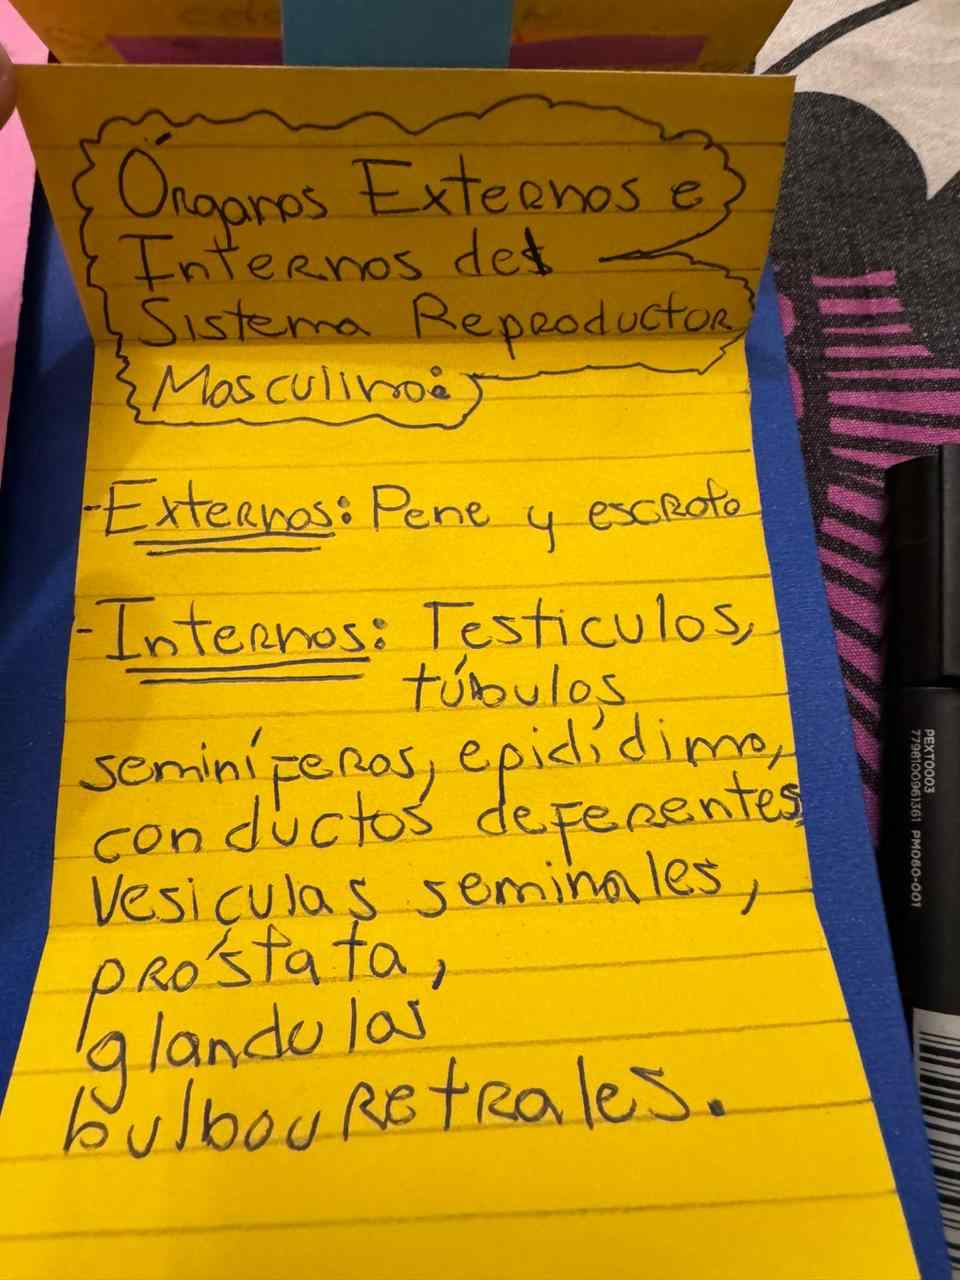 Órganos Externos e
Internos del
Sistema Reproductor
Masculino:
-Externos: Pene y escroto
-Internos: Testiculos,
túbulos
seminíferos, epidídimo,
conductos deferentes
Vesiculas seminales,
próstata,
glandulas
bulbouretrales.
PEXT0003
7798100961361 PM060-001